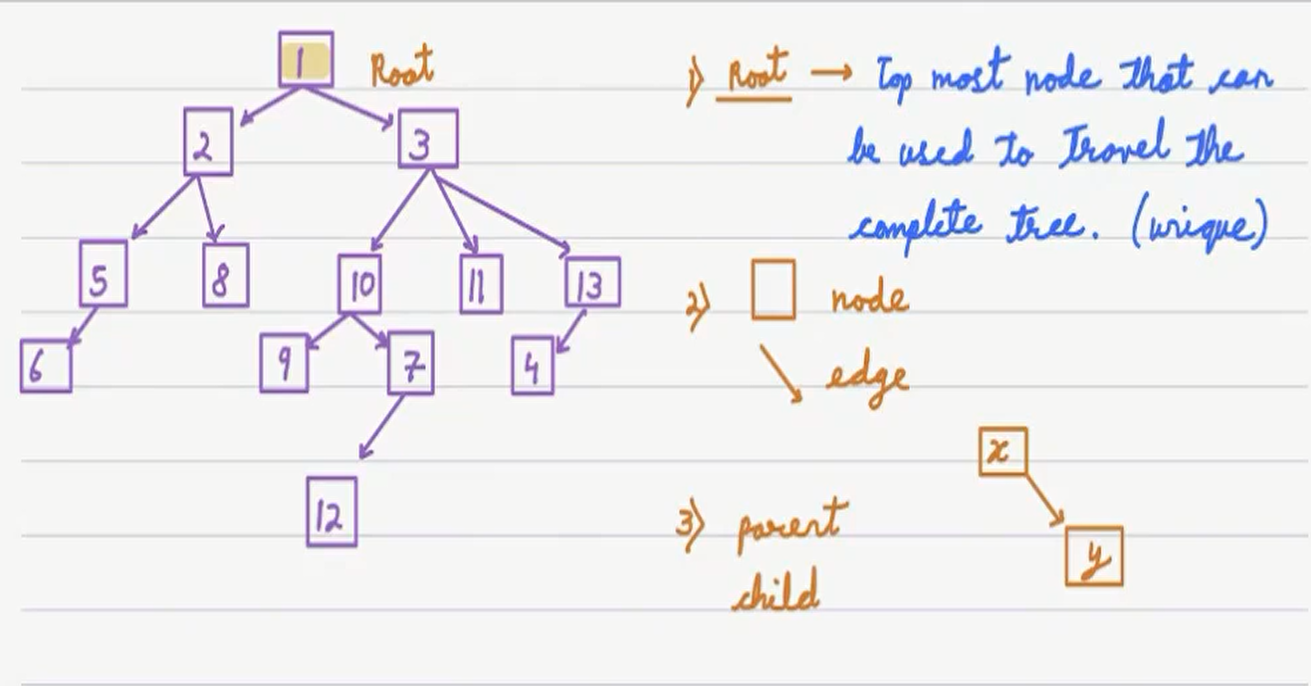 1 Root
2 3
5 8 10 11 13
6 9 7 4
12
1) Root → Top most node that can
be used to travel the
complete tree. (unique)
2) node
edge
x
y
3) parent
child